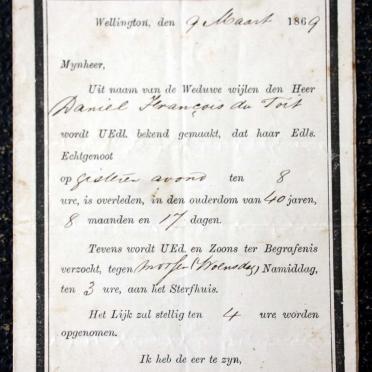 Wellington, den 9 Maart 1869
Mynheer,
Uit naam van de Weduwe wijlen den Heer
Daniel François du Toit
wordt UEdl. bekend gemaakt, dat haar Edls.
Echtgenoot
op gisteren avond ten 8
ure, is overleden, in den ouderdom van 40 jaren,
8 maanden en 17 dagen.
Tevens wordt UEd. en Zoons ter Begrafenis
verzocht, tegen morgen (Woensdag) Namiddag,
ten 3 ure, aan het Sterfhuis.
Het Lijk zal stellig ten 4 ure worden
opgenomen.
Ik heb de eer te zyn,